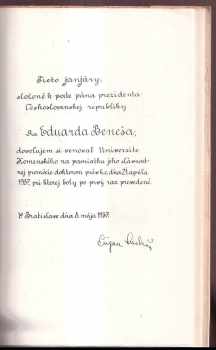 Tieto fanfáry,
složené k pocte pána prezidenta
Československej republiky
Dra Eduarda Beneša,
dovoľujem si venovať Universite
Komenského na pamiatku jeho slávnost-
nej promócie doktorom práv h.c. dňa 21. apríla
1937, pri ktorej boly po prvý raz prevedené.
V Bratislave dňa 5. mája 1937.
Eugen Suchoň